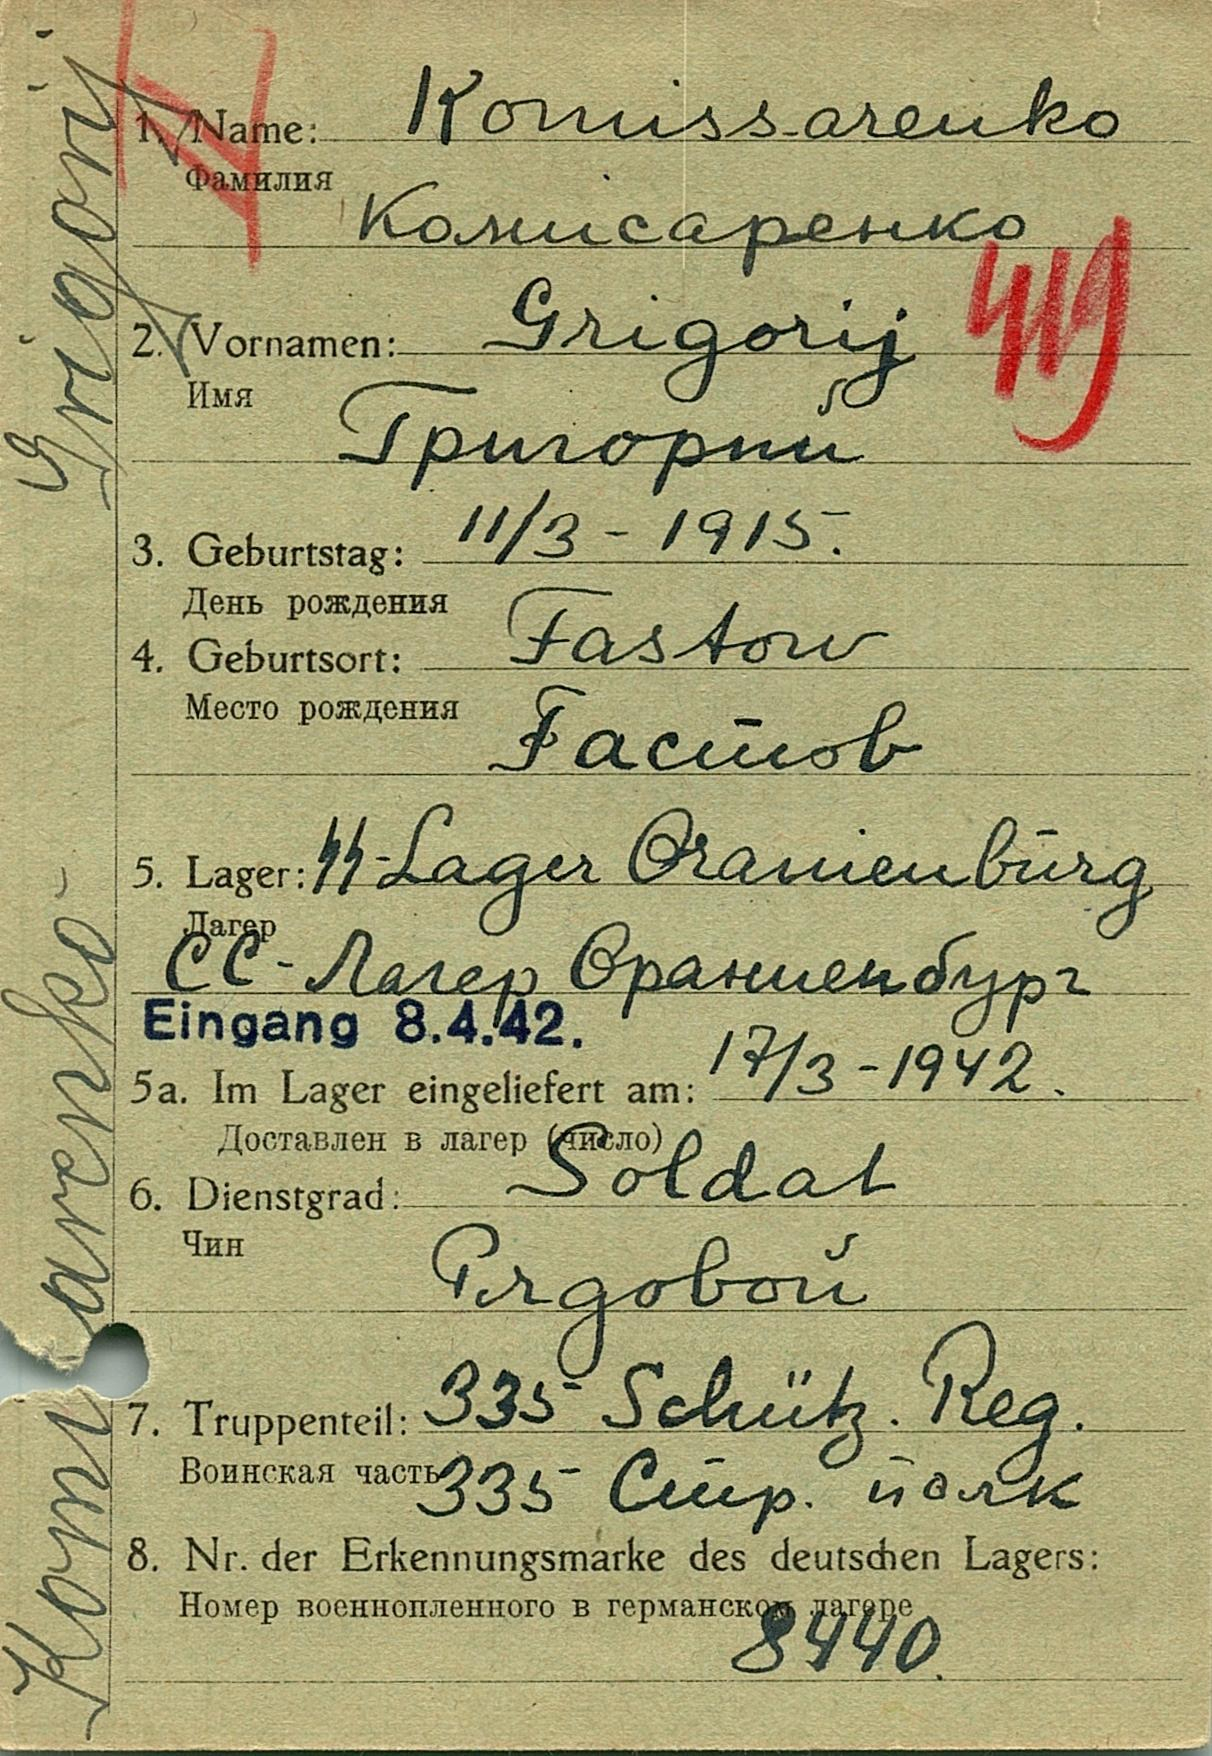 1. Name: Komissarenko
Фамилия
Комисаренко
419
2. Vornamen: Grigorij
Имя
Григорий
3. Geburtstag: 11/3 - 1915.
День рождения
4. Geburtsort: Fastow
Место рождения
Fастов
5. Lager: SS-Lager Oranienburg
Лагер
СС-Лагер Ораниенбург
Eingang 8.4.42.
5a. Im Lager eingeliefert am: 17/3 - 1942.
Доставлен в лагер (число)
6. Dienstgrad: Soldat
Чин
Рядовой
7. Truppenteil: 335 Schütz. Reg.
Воинская часть 335 Стр. полк
8. Nr. der Erkennungsmarke des deutschen Lagers:
Номер военнопленного в германском лагере
8440.
Grigorij